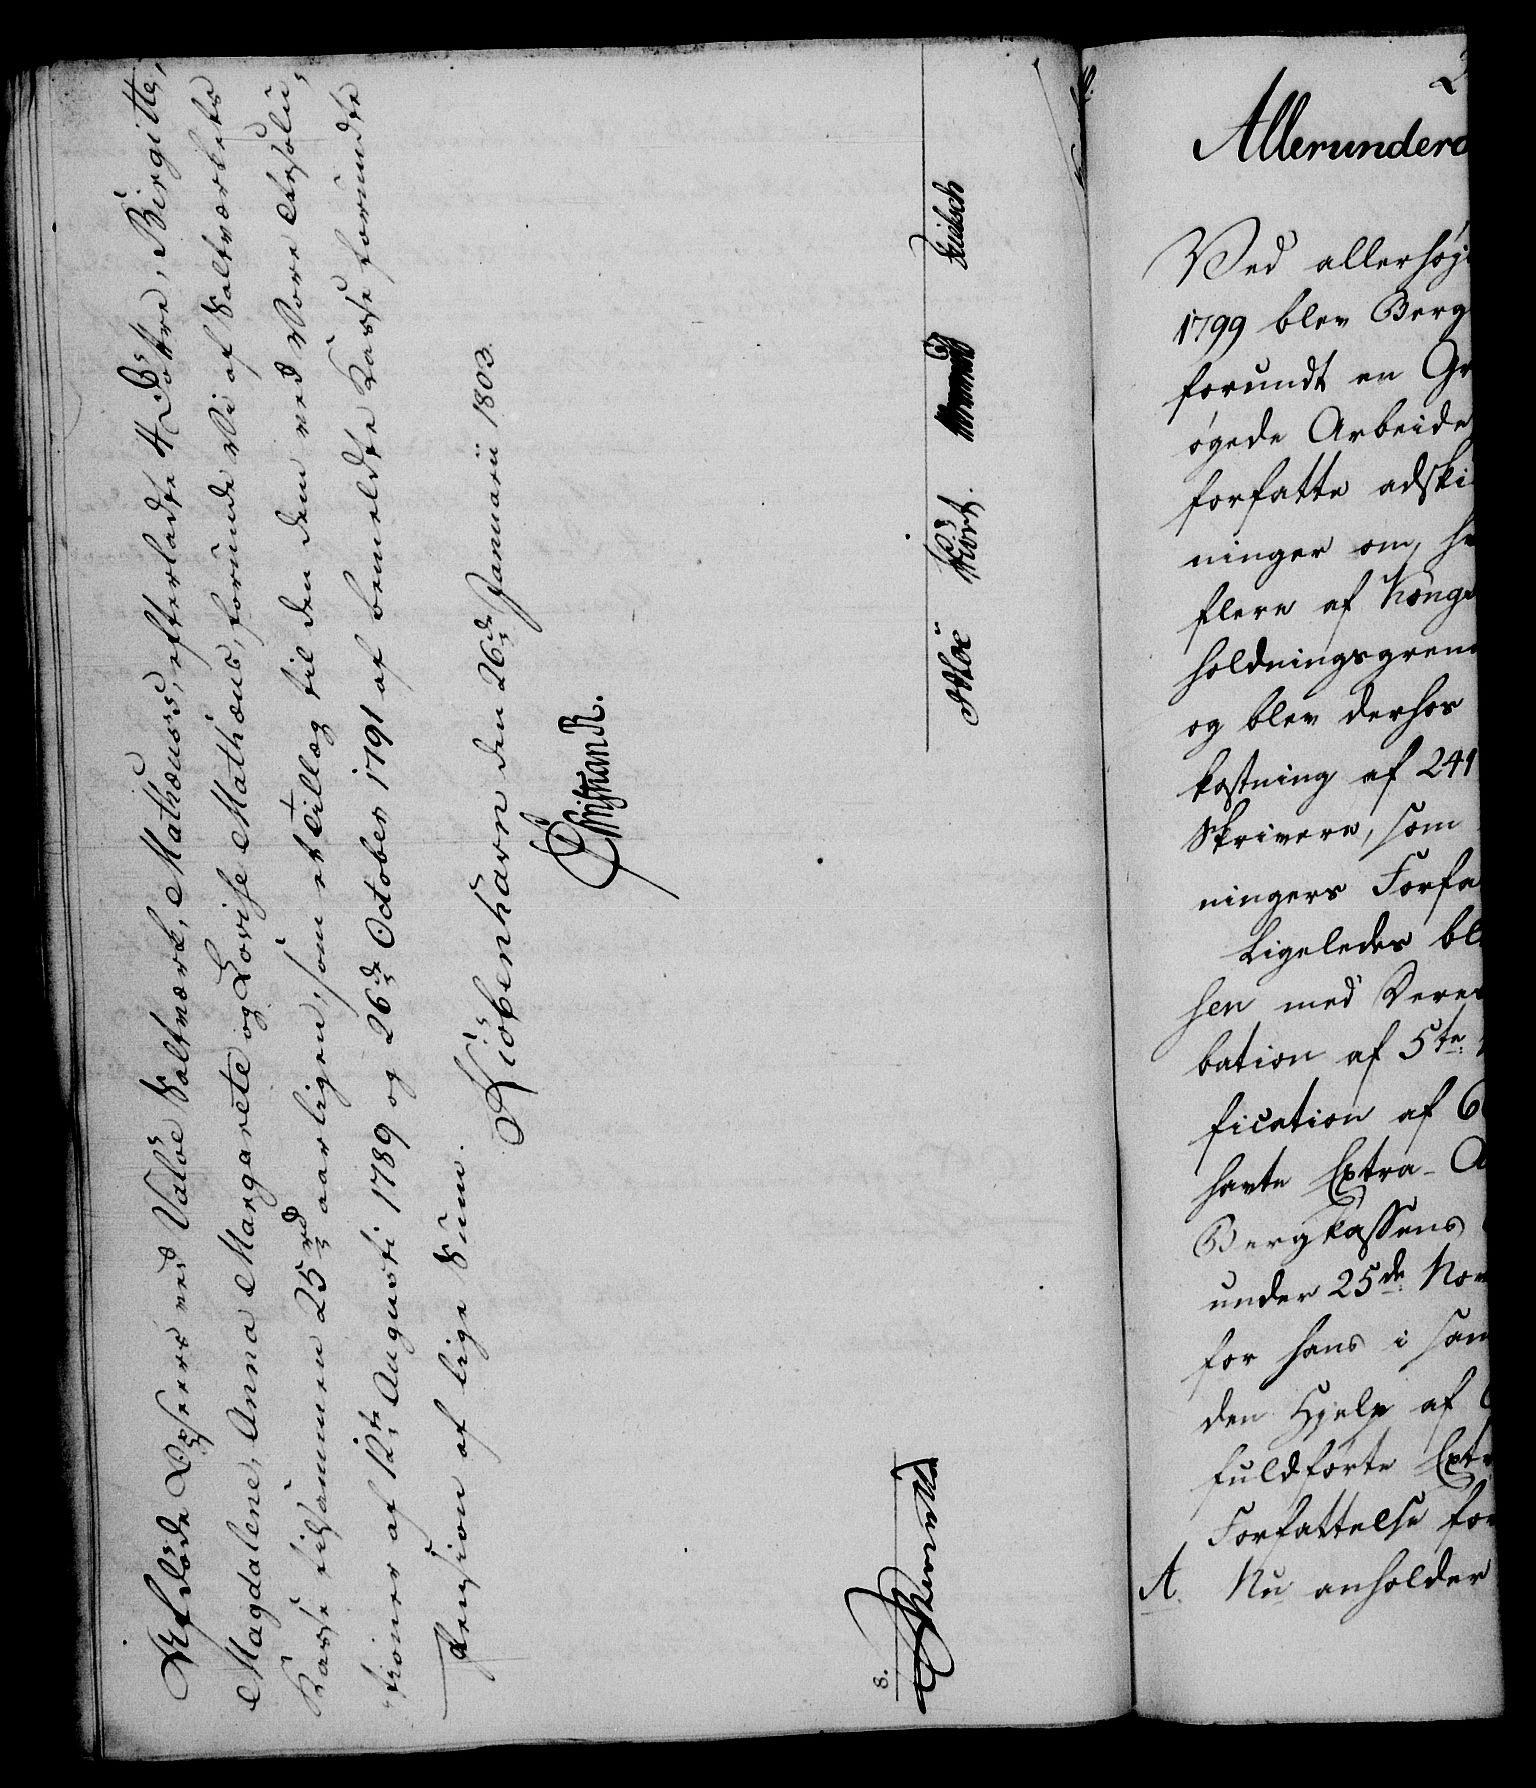 Afdøde Opseers ved Valöe Saltværk, Mathæus's, efterladte 4 Døttre, Birgitte,
Magdalene, Anna Margarete og Lovise Mathæus, forunde Vi af Saltværkets
Kasse tilsammen 25 rd aarligen, som et Tillæg til den dem ved Vore Resolu-
tioner af 12te Augusti 1789 og 26de October 1791 af bemeldte Kasse forundte
Pension af lige Sum.
Kiöbenhavn den 26de Januarii 1803.
Christian R.
Hiort.
8.
Allerunderd
Ved allerhøj
1799 blev Berg
forundt en Gr
øgede Arbeide
forfatte adski
ninger om, h
flere af Konge
holdningsgrene
og blev derhos
kostning af 241
Skrivere, som
ningers Forfa
Ligeledes bl
sen med Deres
bation af 5te
fication af 6
havte Extra-A
Bergkassens
under 25de Nov
for hans i sam
den Hjelp af
fuldførte Extr
Forfattelse for
A. Nu anholder